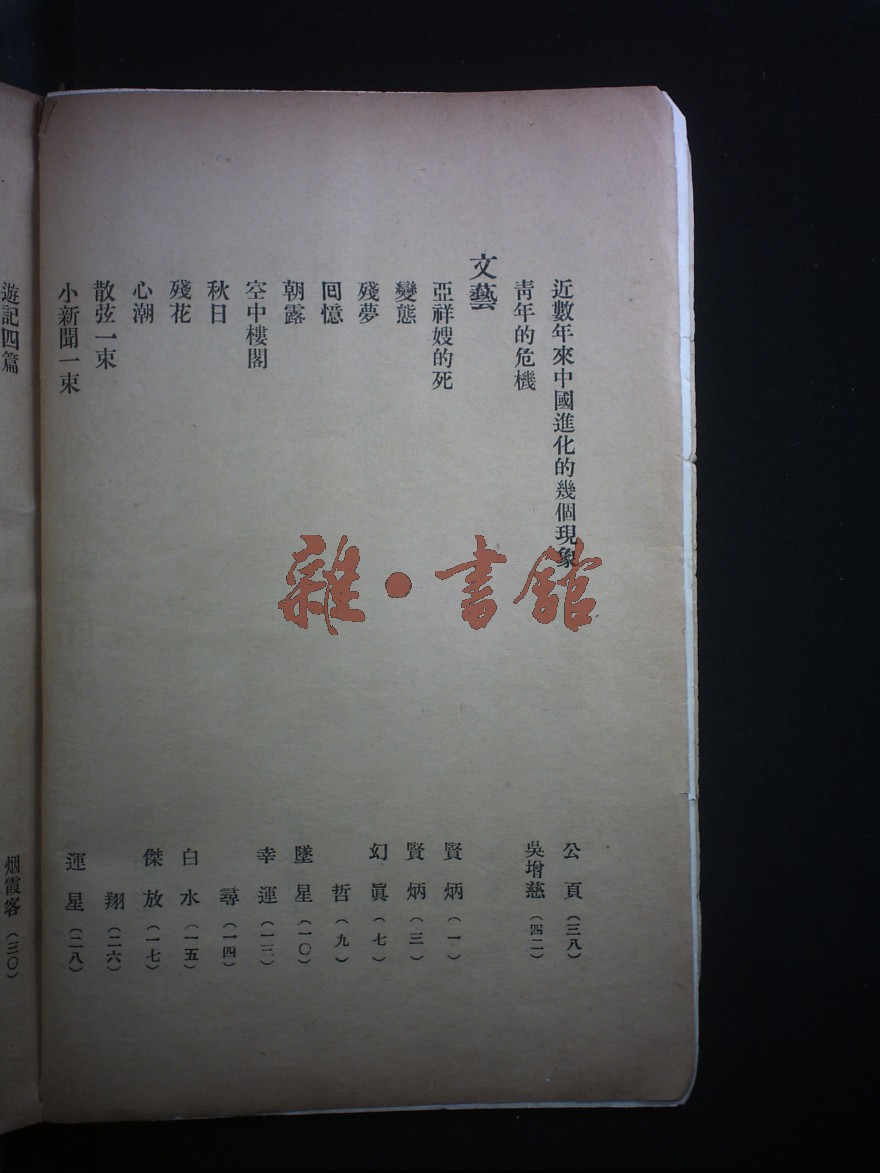 近數年來中國進化的幾個現象 公頁(三八)
青年的危機 吳增慈(四二)
文藝
亞祥嫂的死 賢炳(一)
變態 賢炳(三)
殘夢 幻眞(七)
回憶 哲(九)
朝露 墜星(一〇)
空中樓閣 幸運(一三)
秋日 尋(一四)
殘花 白水(一五)
心潮 傑放(一七)
散弦一束 翔(二六)
小新聞一束 運星(二八)
遊記四篇 烟霞客(三〇)
雜·書館